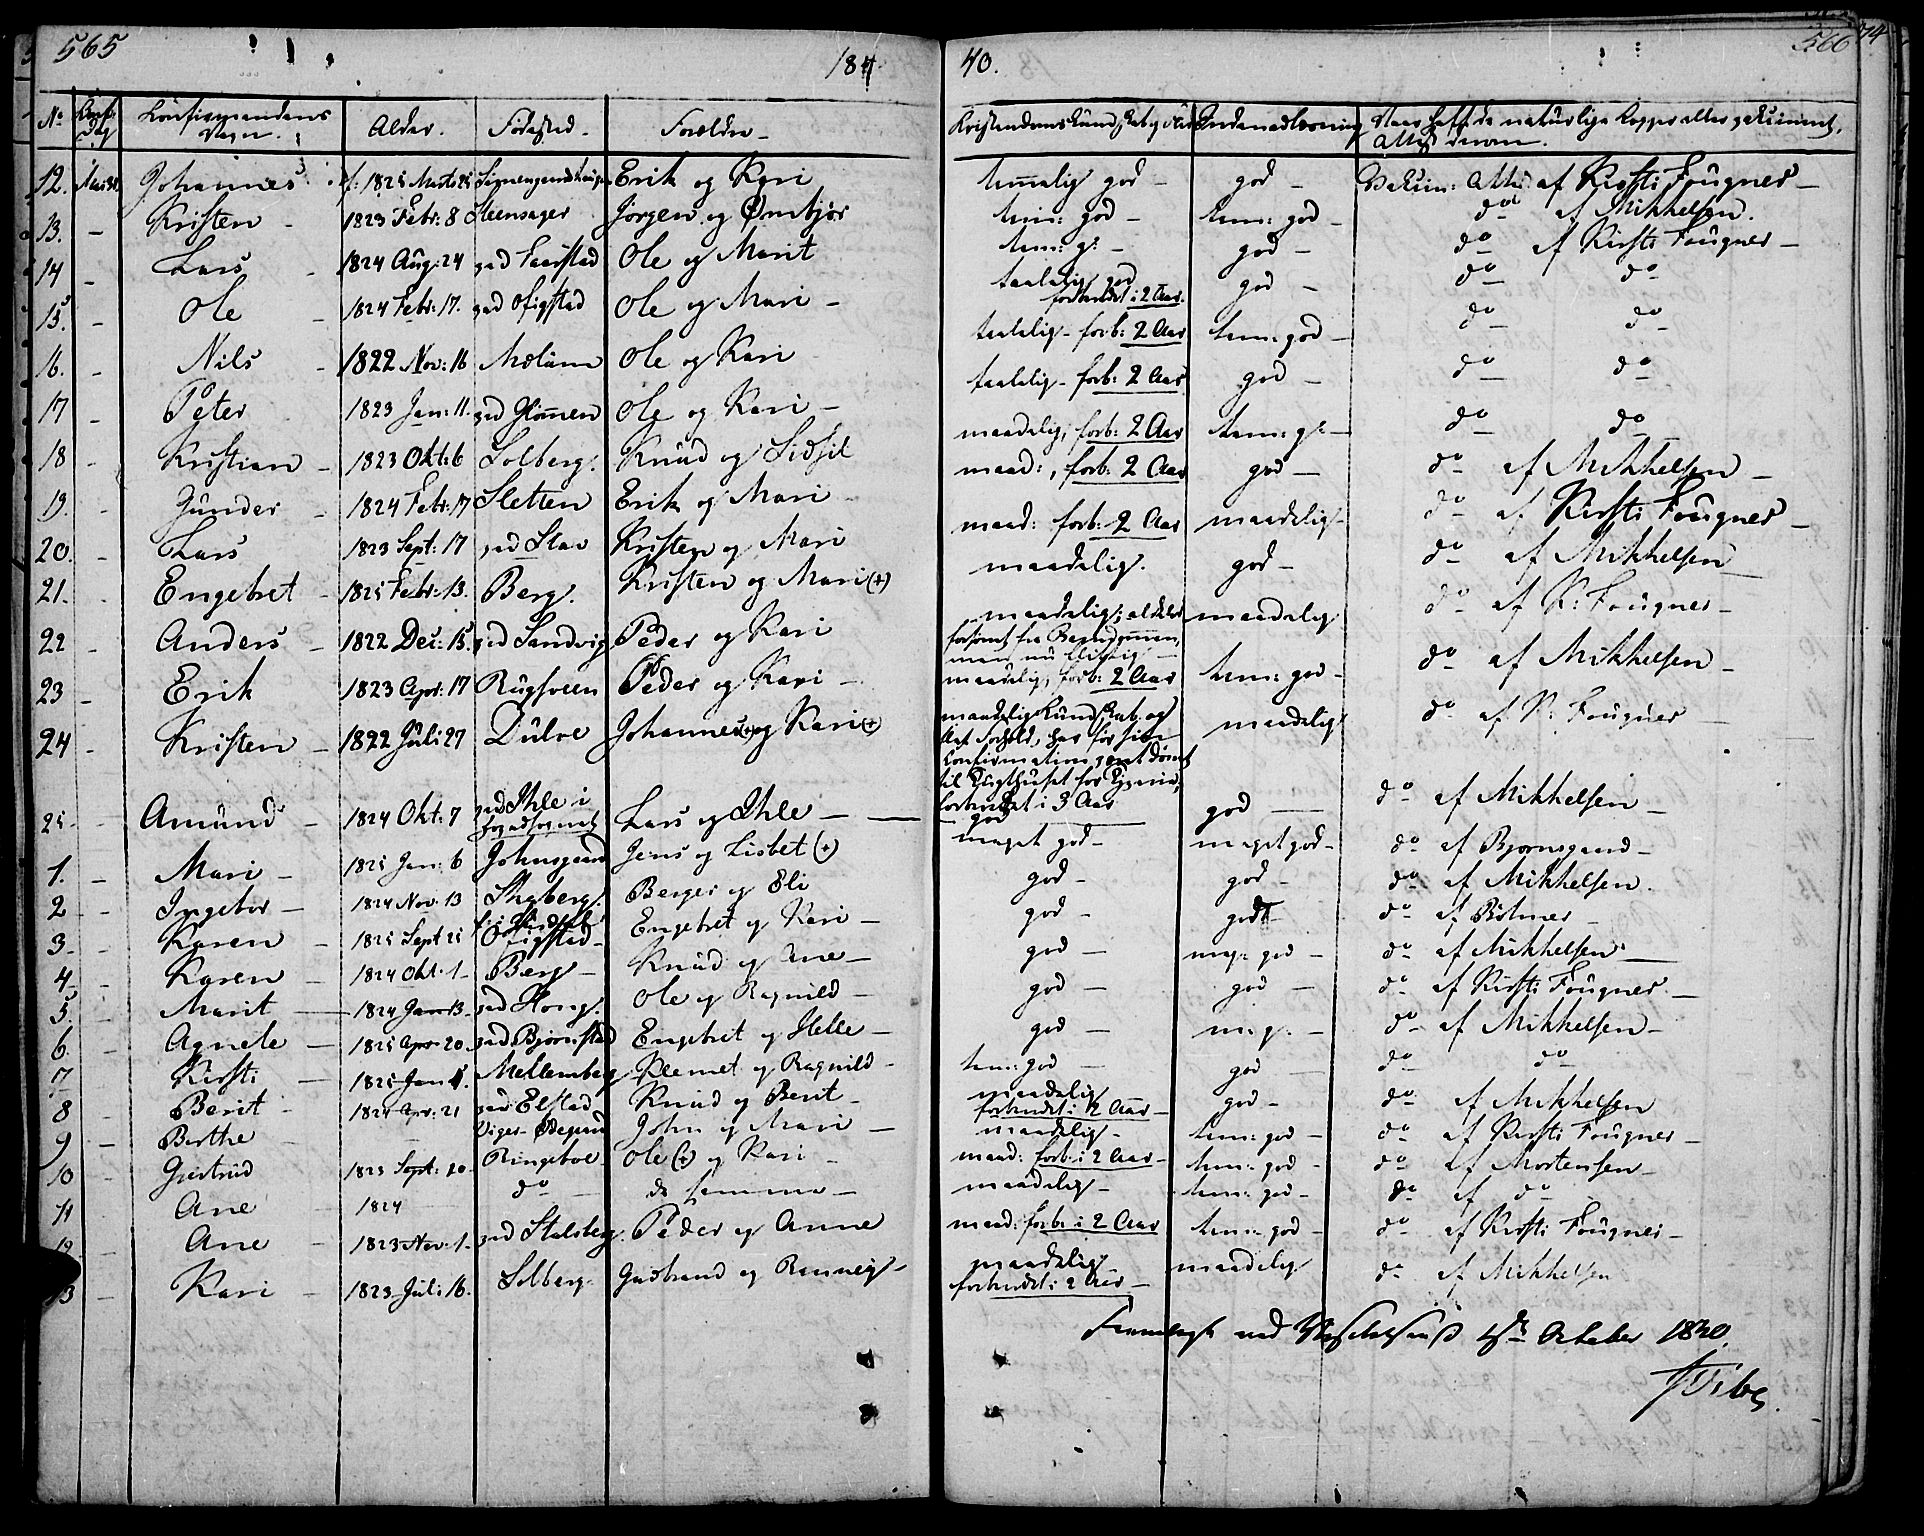 565
1840.
566
74
No Konf: Dag Konfirmandens Navn. Alder. Fødested. Forældre Kristendoms Kundskab og Flid Indenadlæsning Naar haft de naturlige Kopper eller vakcineret, Attest derom.
12. Mai 31. Johannes f: 1825 Marts 25 Erik og Kari temmelig god – god – Vakcin: Att: af Kirsti Fougner –
13. – Kristen – 1823 Febr: 8 Steensager Jørgen og Ømbjør tem: god – tem: god – do af Mikkelsen.
14 – Lars – 1824 Aug: 24 grd Faarstad Ole og Marit tem: g: – god – do af Kirsti Fougner –
15. – Ole – 1824 Febr: 17. grd Ofigstad Ole og Mari – taalelig god forbredt i 2 Aar. god – do do
16. – Nils – 1822 Nov: 16 Ole og Kari – taalelig – forb: 2 Aar tem: god – do do
17 – Peter 1823 Jan: 11. grd Glomen Ole og Kari – taalelig – forb: 2 Aar god – do do
18 – Kristian – 1823 Okt: 6 Solberg. Knud og Sidsil maadelig, forb: 2 Aar tem: g: – do do
19. – Gunder – 1824 Febr: 17 Sletten Erik og Mari – maad:, forb: 2 Aar god – do af Mikkelsen –
20. – Lars 1823 Sept: 17 grd Stav Kristen og Mari maad: forb: 2 Aar maadelig – do af Kirsti Fougner –
21. – Engebret – 1825 Febr: 13. Berg. Kristen og Mari (+) maadelig. god – do af Mikkelsen –
22 – Anders – 1822 Dec: 15. grd Sandvig Peder og Kari maadelig; aldeles maadelig do af K: Fougner –
men nu flittig –
23 – Erik 1823 Apr: 17 Rugsveen Peder og Kari – maadelig, forb: 2 Aar tem: god – do af Mikkelsen –
24 – Kristen – 1822 Juli 27 Dulve Johannes (+) og Kari (+) maadelig Kundskab og maadelig do af K: Fougner –
slet Forhold, har før sin
Konfirmation været dømt
til Tugthuset for Tyverie,
forbredt i 3 Aar
25 – Amund – 1824 Okt: 7 grd Ihle i Lars og Ihle – god god – do af Mikkelsen –
1. – Mari – 1825 Jan: 6 Johnsgaard Jens og Lisbet (+) meget god – meget god – do af Bjørnsgaard –
2 – Ingebor – 1824 Nov: 13 Skyberg. Berger og Eli god – god – do af Mikkelsen.
3. – Karen – 1825 Sept 25 Ofigstad – Engebret og Kari – god – godt – do af Bøhmer –
4 – Karen – 1824 Okt: 1 – Berg – Knud og Ane – god – meg: god – do af Mikkelsen –
5. – Marit – 1824 Jan: 13. grd Houg. Ole og Ragnild – god – god – do af Kirsti Fougner. –
6. – Agnete – 1825 Apr: 20. grd Bjørnstad Engebret og Helle – god – m: g: – do af Mikkelsen –
7 – Kirsti – 1825 Jan: Mellemberg Klemet og Ragnild – tem: god – god – do do
8 – Berit – 1824 Apr: 21 grd Elstad Knud og Berit – maadelig forbredt i 2 Aar – god – do af Mikkelsen
9 – Berthe – John og Mari – maadelig – tem: god – do af Kirsti Fougner –
10 – Gjertrud 1823 Sept: 20 – Ringeboe – Ole (+) og Kari – maad: forb: i 2 Aar – tem: god – do af Mortensen –
11 – Ane – 1824 do de samme – maadelig – tem: god – do af do
12 – Ane – 1823 Nov: 1. grd Stalsberg Peder og Anne maad: forb: i 2 Aar tem: god – do af Kirsti Fougner –
13 – Kari – 1823 Juli 16. Solberg. Gudbrand og Ranneig – maadelig – forbredt i 2 Aar – maadelig do af Mikkelsen
October 1840.